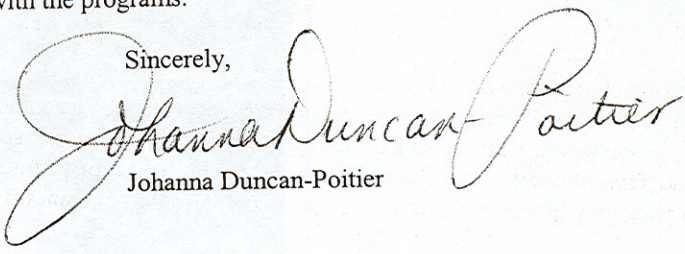 with the programs.
Sincerely,
Johanna Duncan-Poitier
Johanna Duncan-Poitier